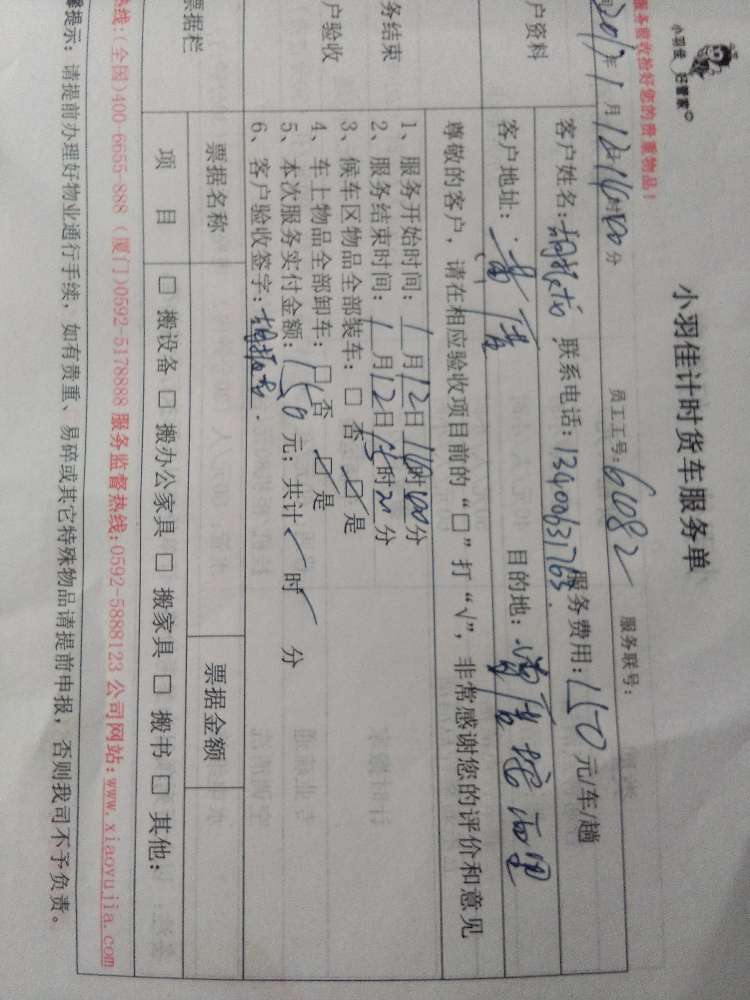 小羽佳 好管家©
小羽佳计时货车服务单
服务前收拾好您的贵重物品！
员工工号：6082 服务联号：
2017年1月12日14时00分
户资料
客户姓名： 联系电话：13400631763 服务费用：150元/车/趟
客户地址： 目的地：
务结束
户验收
尊敬的客户，请在相应验收项目前的“□”打“√”，非常感谢您的评价和意见
1、服务开始时间：1月12日14时00分
2、服务结束时间：1月12日15时20分
3、候车区物品全部装车：□ 否 ☑ 是
4、车上物品全部卸车：□ 否 ☑ 是
5、本次服务实付金额：150元；共计 时 分
6、客户验收签字：
票据栏
票据名称 票据金额
项 目 □ 搬设备 □ 搬办公家具 □ 搬家具 □ 搬书 □ 其他：
热线：(全国)400-6655-888 (厦门)0592-5178888 服务监督热线：0592-5888123 公司网站：www.xiaoyujia.com
提示：请提前办理好物业通行手续，如有贵重、易碎或其它特殊物品请提前申报，否则我司不予负责。